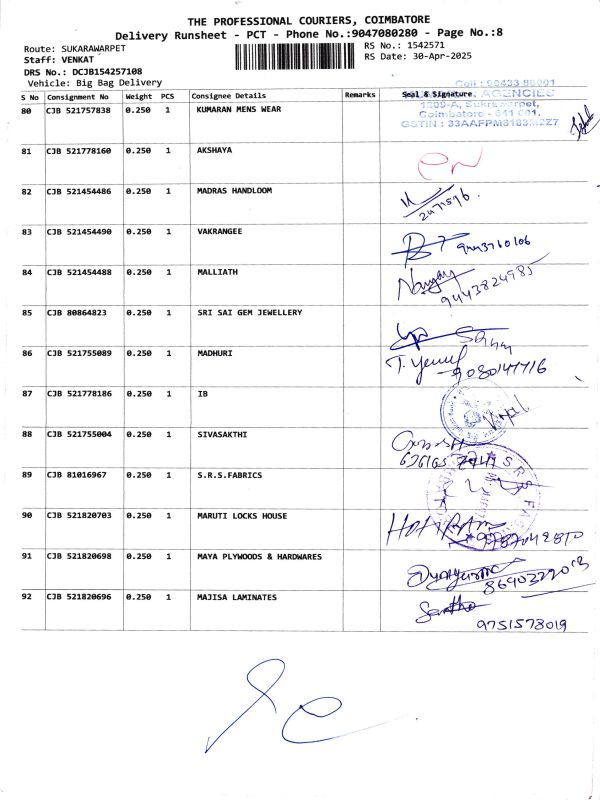 THE PROFESSIONAL COURIERS, COIMBATORE
Delivery Runsheet - PCT - Phone No.:9047080280 - Page No.:8
Route: SUKARAWARPET
Staff: VENKAT
DRS No.: DCJB154257108
Vehicle: Big Bag Delivery
RS No.: 1542571
RS Date: 30-Apr-2025
S No Consignment No Weight PCS Consignee Details Remarks Seal & Signature
AGENCIES
1209-A, Sukrawarpet,
Coimbatore - 641 001.
80 CJB 521757838 0.250 1 KUMARAN MENS WEAR
81 CJB 521778160 0.250 1 AKSHAYA
82 CJB 521454486 0.250 1 MADRAS HANDLOOM
2471596
83 CJB 521454490 0.250 1 VAKRANGEE
9443760106
84 CJB 521454488 0.250 1 MALLIATH
9443824985
85 CJB 80864823 0.250 1 SRI SAI GEM JEWELLERY
86 CJB 521755089 0.250 1 MADHURI
9080147716
87 CJB 521778186 0.250 1 IB
88 CJB 521755004 0.250 1 SIVASAKTHI
89 CJB 81016967 0.250 1 S.R.S.FABRICS
90 CJB 521820703 0.250 1 MARUTI LOCKS HOUSE
91 CJB 521820698 0.250 1 MAYA PLYWOODS & HARDWARES
92 CJB 521820696 0.250 1 MAJISA LAMINATES
9751578019